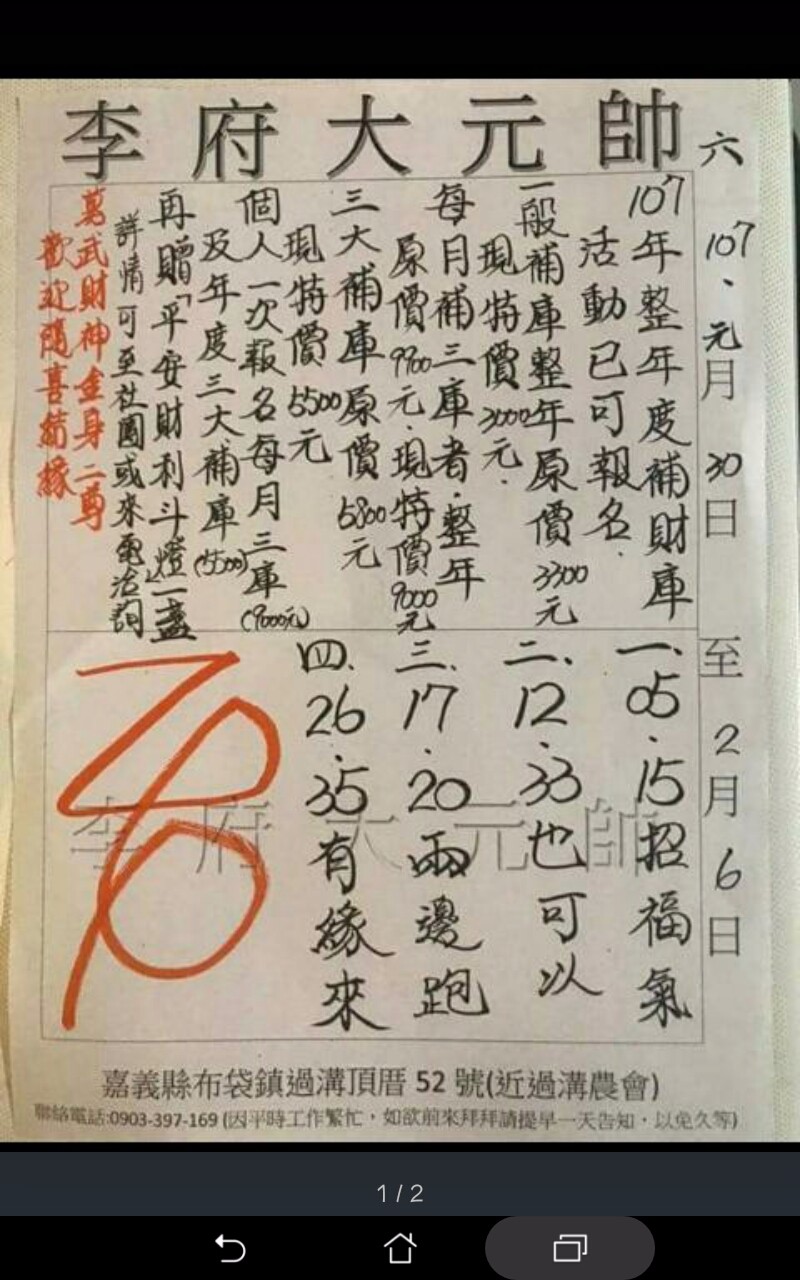 李府大元帥
六
107、元月30日至2月6日
107年整年度補財庫
活動已可報名.
一般補庫整年原價3300元
現特價3000元.
每月補三庫者.整年
原價9900元.現特價9000元
三大補庫原價5800元
現特價5500元
個人一次報名每月三庫(9000元)
及年度三大補庫(5500)
再贈「平安財利斗燈」一盞
詳情可至社團或來電洽詢
萬武財神金身二尊
歡迎隨喜結緣
一、05.15招福氣
二、12.33也可以
三、17.20兩邊跑
四、26.35有緣來
李府大元帥
嘉義縣布袋鎮過溝頂厝52號(近過溝農會)
聯絡電話:0903-397-169 (因平時工作繁忙,如欲前來拜拜請提早一天告知,以免久等)
1 / 2